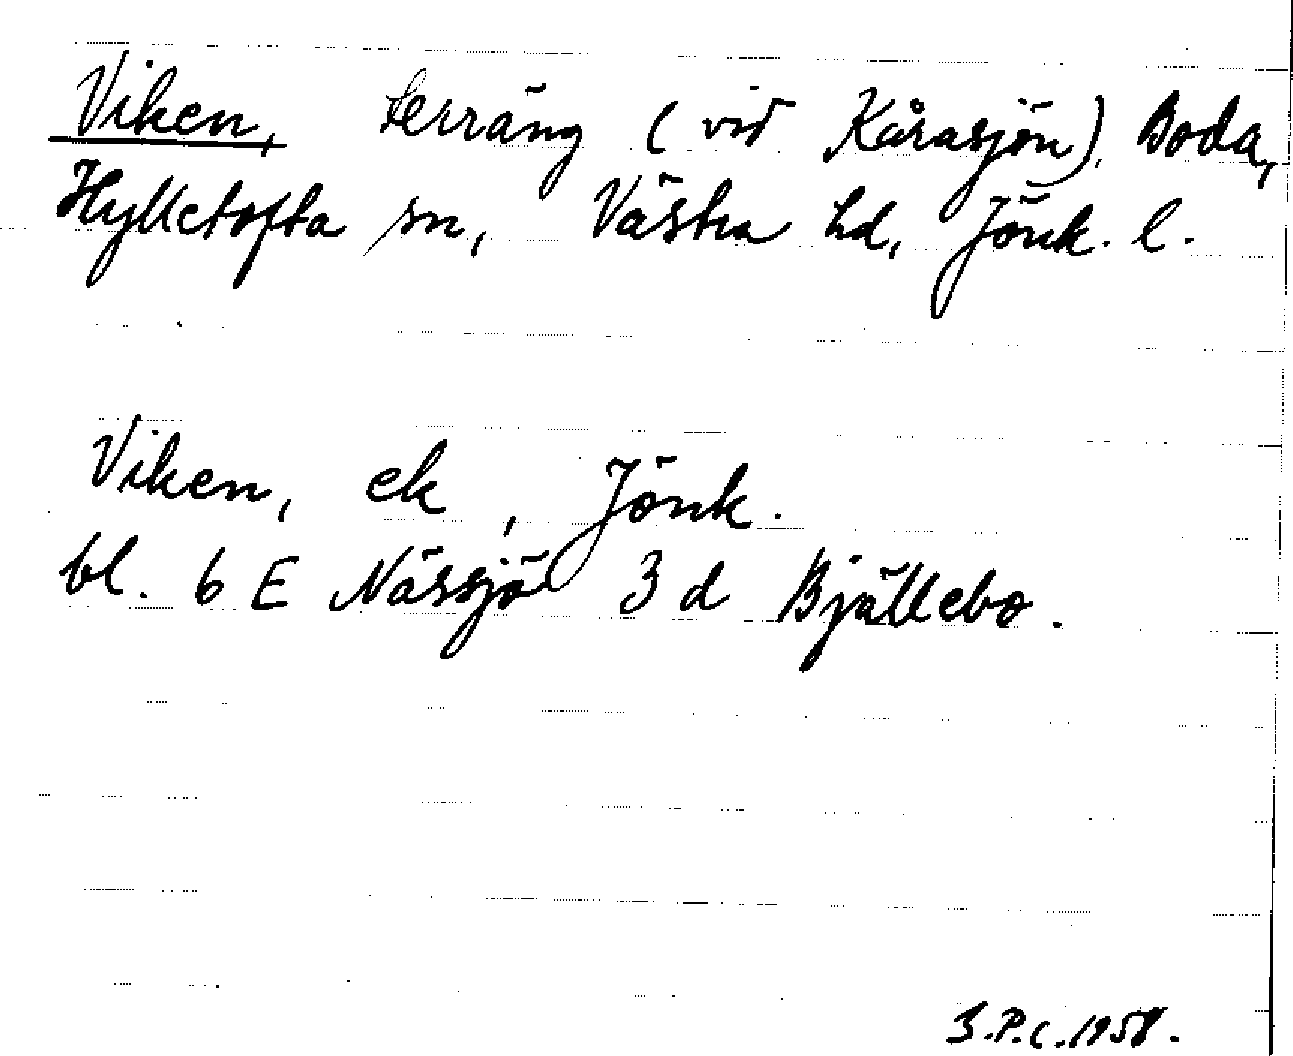 Viken, terräng (vid Kårasjön), Boda,
Hylletofta sn, Västra hd, Jönk. l.
Viken, ek, Jönk.
bl. 6 E Nässjö 3 d Bjällebo.
1958.